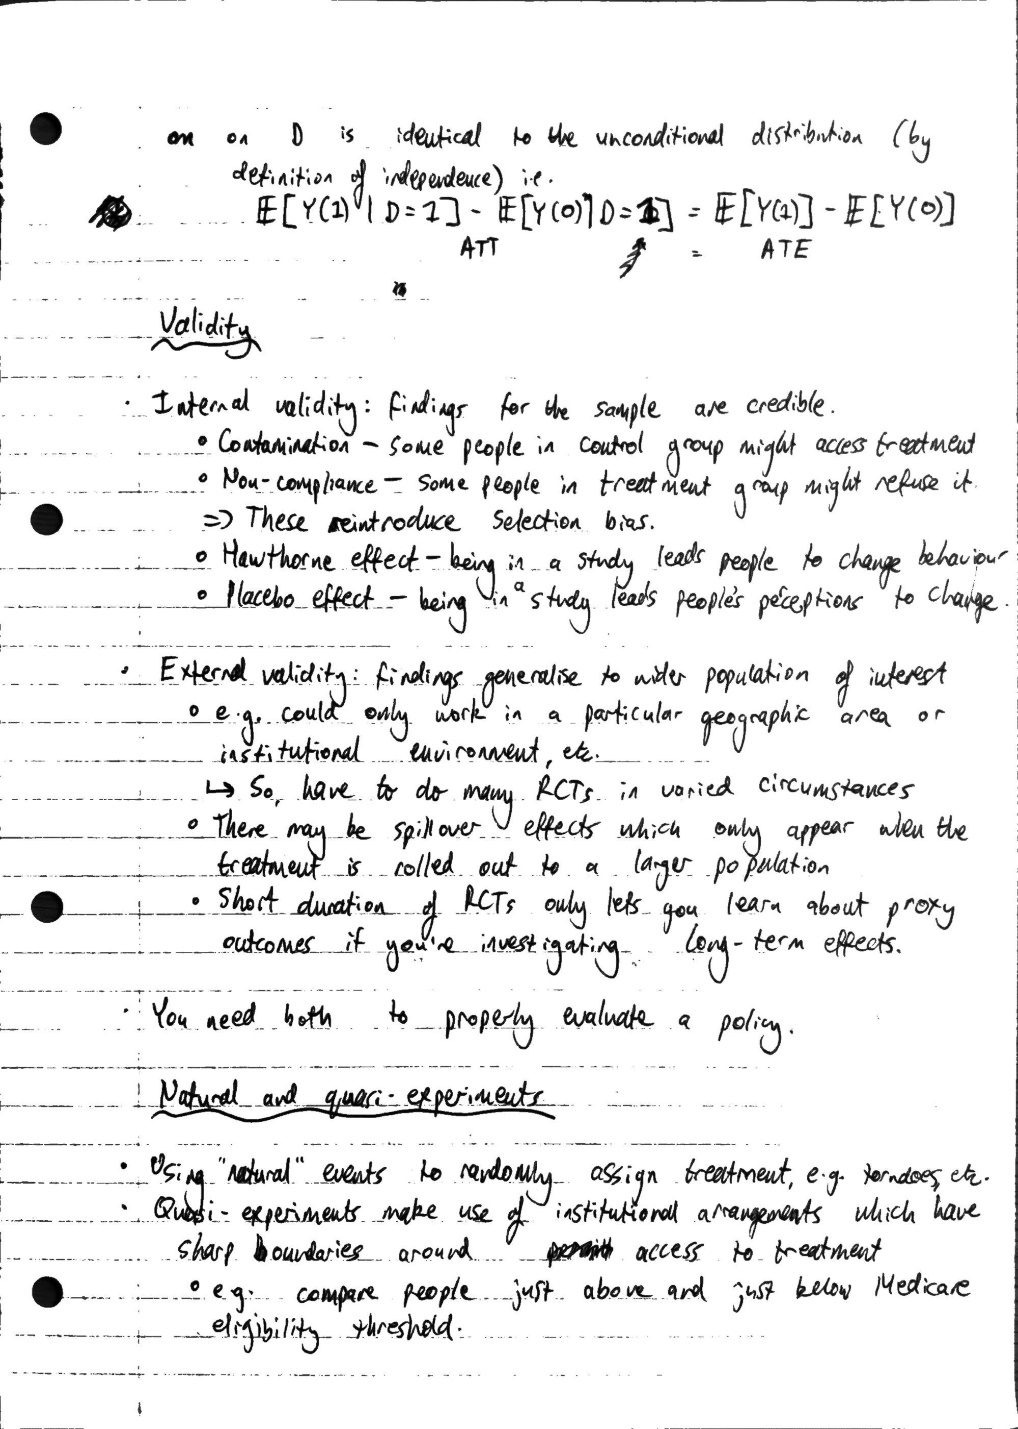 on on D is identical to the unconditional distribution (by
definition of independence) i.e.
𝔼[Y(1) | D=1] - 𝔼[Y(0) | D=1] = 𝔼[Y(1)] - 𝔼[Y(0)]
ATT = ATE
Validity
· Internal validity: findings for the sample are credible.
∘ Contamination – some people in control group might access treatment
∘ Non-compliance – some people in treatment group might refuse it.
=> These reintroduce selection bias.
∘ Hawthorne effect – being in a study leads people to change behaviour
∘ Placebo effect – being in a study leads people's perceptions to change.
· External validity: findings generalise to wider population of interest
∘ e.g. could only work in a particular geographic area or
institutional environment, etc.
↳ So, have to do many RCTs in varied circumstances
∘ There may be spillover effects which only appear when the
treatment is rolled out to a larger population
∘ Short duration of RCTs only lets you learn about proxy
outcomes if you're investigating long-term effects.
· You need both to properly evaluate a policy.
Natural and quasi-experiments
· Using "natural" events to randomly assign treatment, e.g. torndoes, etc.
· Quasi-experiments make use of institutional arrangements which have
sharp boundaries around access to treatment
∘ e.g. compare people just above and just below Medicare
eligibility threshold.